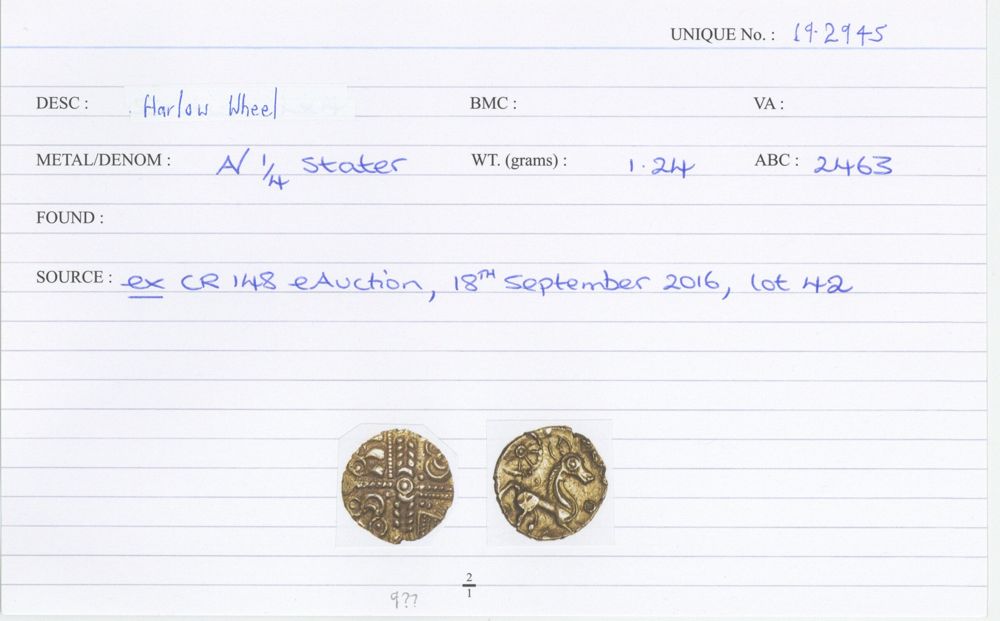 UNIQUE No. : 19.2945
DESC : Harlow Wheel BMC : VA :
METAL/DENOM : A/ 1/4 stater WT. (grams) : 1.24 ABC : 2463
FOUND :
SOURCE : ex CR 148 eAuction, 18TH September 2016, lot 42
2/1
9??